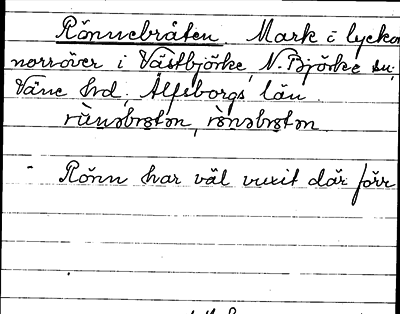 Rönnebråten. Mark i lyckor
norröver i Västbjörke, N. Björke sn,
Väne hd, Älfsborgs län.
rùnəbrǫtən, rònəbrǫtən.
- Rönn har väl vuxit där förr